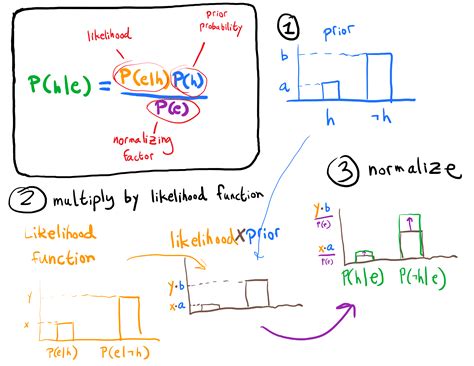 likelihood
prior
probability
P(h|e) = P(e|h) P(h)
P(e)
normalizing
factor
1
prior
b
a
h
¬h
2 multiply by likelihood function
Likelihood
function
y
x
P(e|h)
P(e|¬h)
likelihood x prior
y·b
x·a
3 normalize
y·b
P(e)
x·a
P(e)
P(h|e)
P(¬h|e)